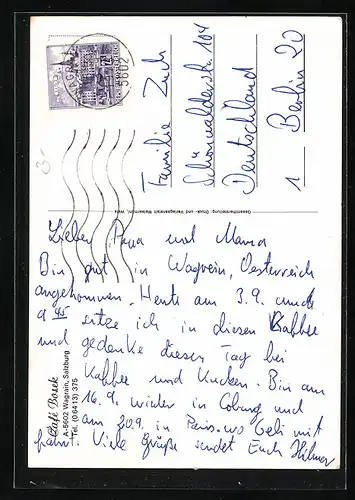 Familie Zuch
Schönwalderstr. 104
Deutschland
1 Berlin 20
5602
Gesamtherstellung: Druck- und Verlagsanstalt Welsermühl, Wels
Lieber Papa und Mama
Bin gut in Wagrein, Oesterreich
angekommen. Heute am 3.9. umd
9 45 sitze ich in diesen Kaffee
und gedenke diesen Tag bei
Kaffee und Kuchen. Bin am
16.9. wieder in Coburg und
am 20.9. in Paris. wo Geli mit
fährt. Viele Grüße sendet Euch Hilmar
Café Bosek
A-5602 Wagrain, Salzburg
Tel. (0 64 13) 375